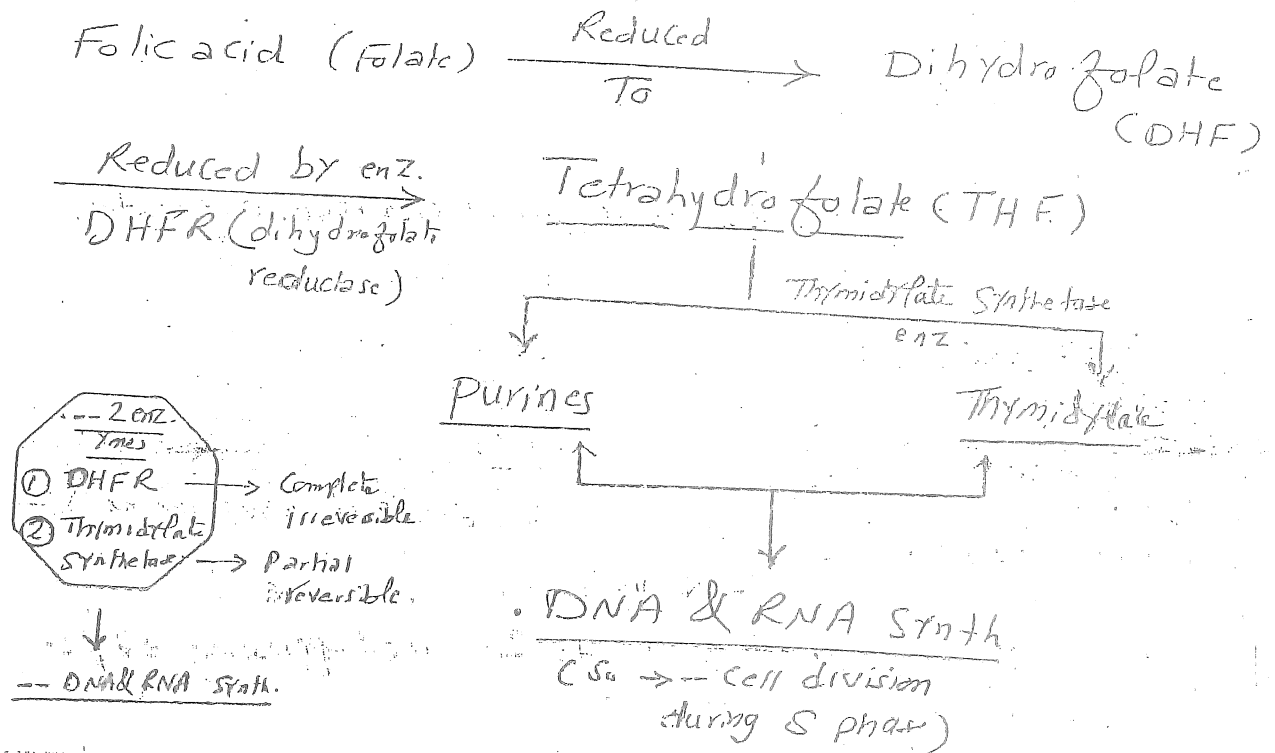 Folic acid (Folate) Reduced To Dihydrofolate
(DHF)
Reduced by enz. Tetrahydrofolate (THF)
DHFR (dihydrofolate
reductase)
Thymidylate Synthetase
enz.
Purines Thymidylate
-- 2 enz.
ymes
① DHFR → Complete
irreversible
② Thymidylate
synthetase → Partial
-- DNA & RNA synth.
DNA & RNA Synth.
(So → -- cell division
during S phase)